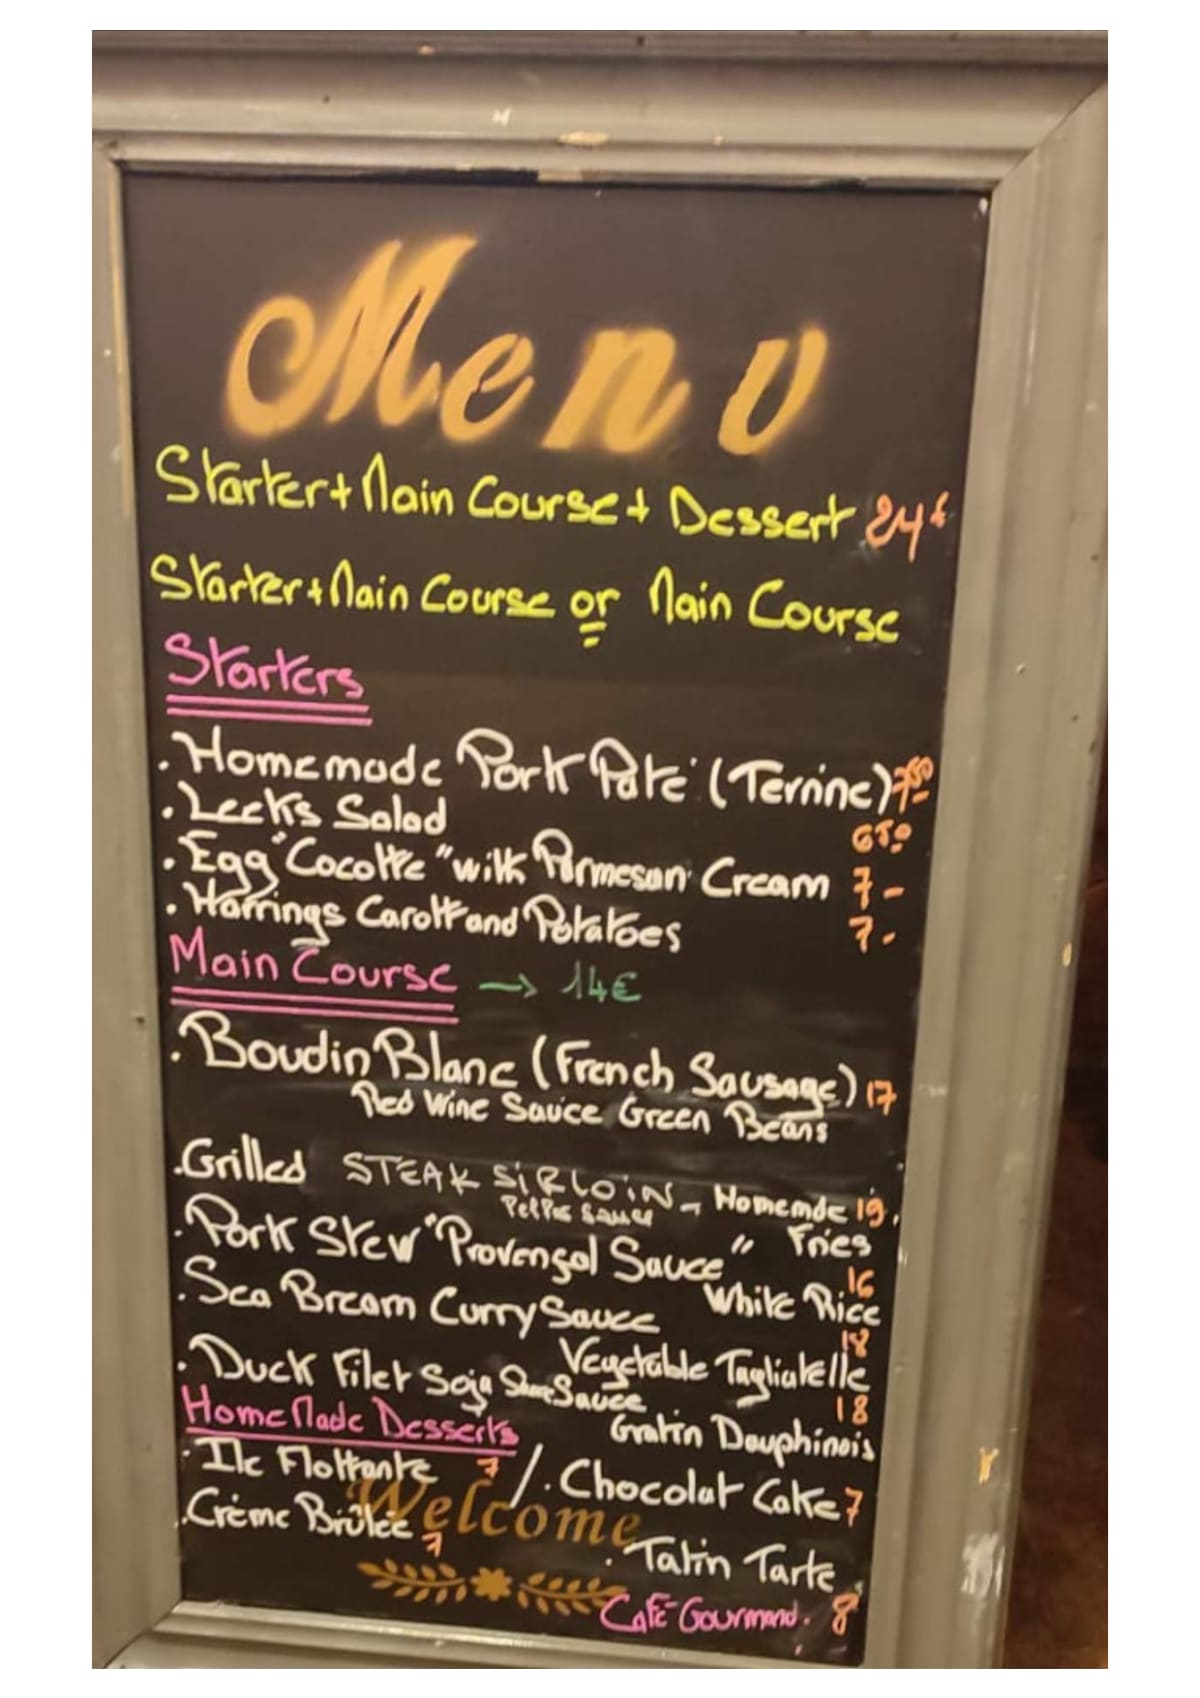 Menu
Starter + Main Course + Dessert 24€
Starter + Main Course or Main Course
Starters
. Homemade Pork Pate (Terrine) 7,50
. Leeks Salad 6,50
. Egg "Cocotte" with Parmesan Cream 7-
. Harrings Carott and Potatoes 7-
Main Course → 14€
. Boudin Blanc (French Sausage) 17
Red Wine Sauce Green Beans
. Grilled STEAK SIRLOIN - Homemde 19
Pepper Sauce Fries
. Pork Stew "Provençal Sauce" 16
White Rice
. Sea Bream Curry Sauce 18
Vegetable Tagliatelle
. Duck Filet Soja Sauce 18
Gratin Dauphinois
HomeMade Desserts
. Ile Flottante 7 / . Chocolat Cake 7
. Crème Brûlée 7
Welcome
. Tatin Tarte
Café Gourmand. 8